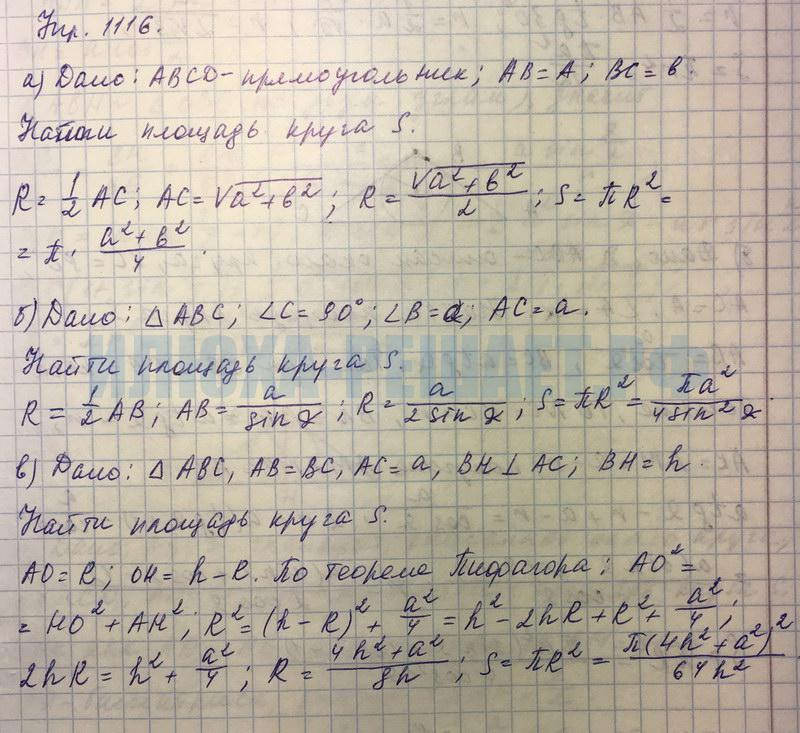 Упр. 1116.
а) Дано: ABCD - прямоугольник; AB = A; BC = в.
Найти площадь круга S.
R = 1/2 AC; AC = √(a² + в²); R = √(a² + в²)/2; S = πR² =
= π · (a² + в²)/4.
б) Дано: △ ABC; ∠C = 90°; ∠B = α; AC = a.
Найти площадь круга S.
R = 1/2 AB; AB = a/sin α; R = a/(2 sin α); S = πR² = πa²/(4 sin² α).
в) Дано: △ ABC, AB = BC, AC = a, BH ⊥ AC; BH = h.
Найти площадь круга S.
AO = R; OH = h - R. По теореме Пифагора: AO² =
= HO² + AH²; R² = (h - R)² + a²/4 = h² - 2hR + R² + a²/4;
2hR = h² + a²/4; R = (4h² + a²)/8h; S = πR² = π(4h² + a²)²/64h²